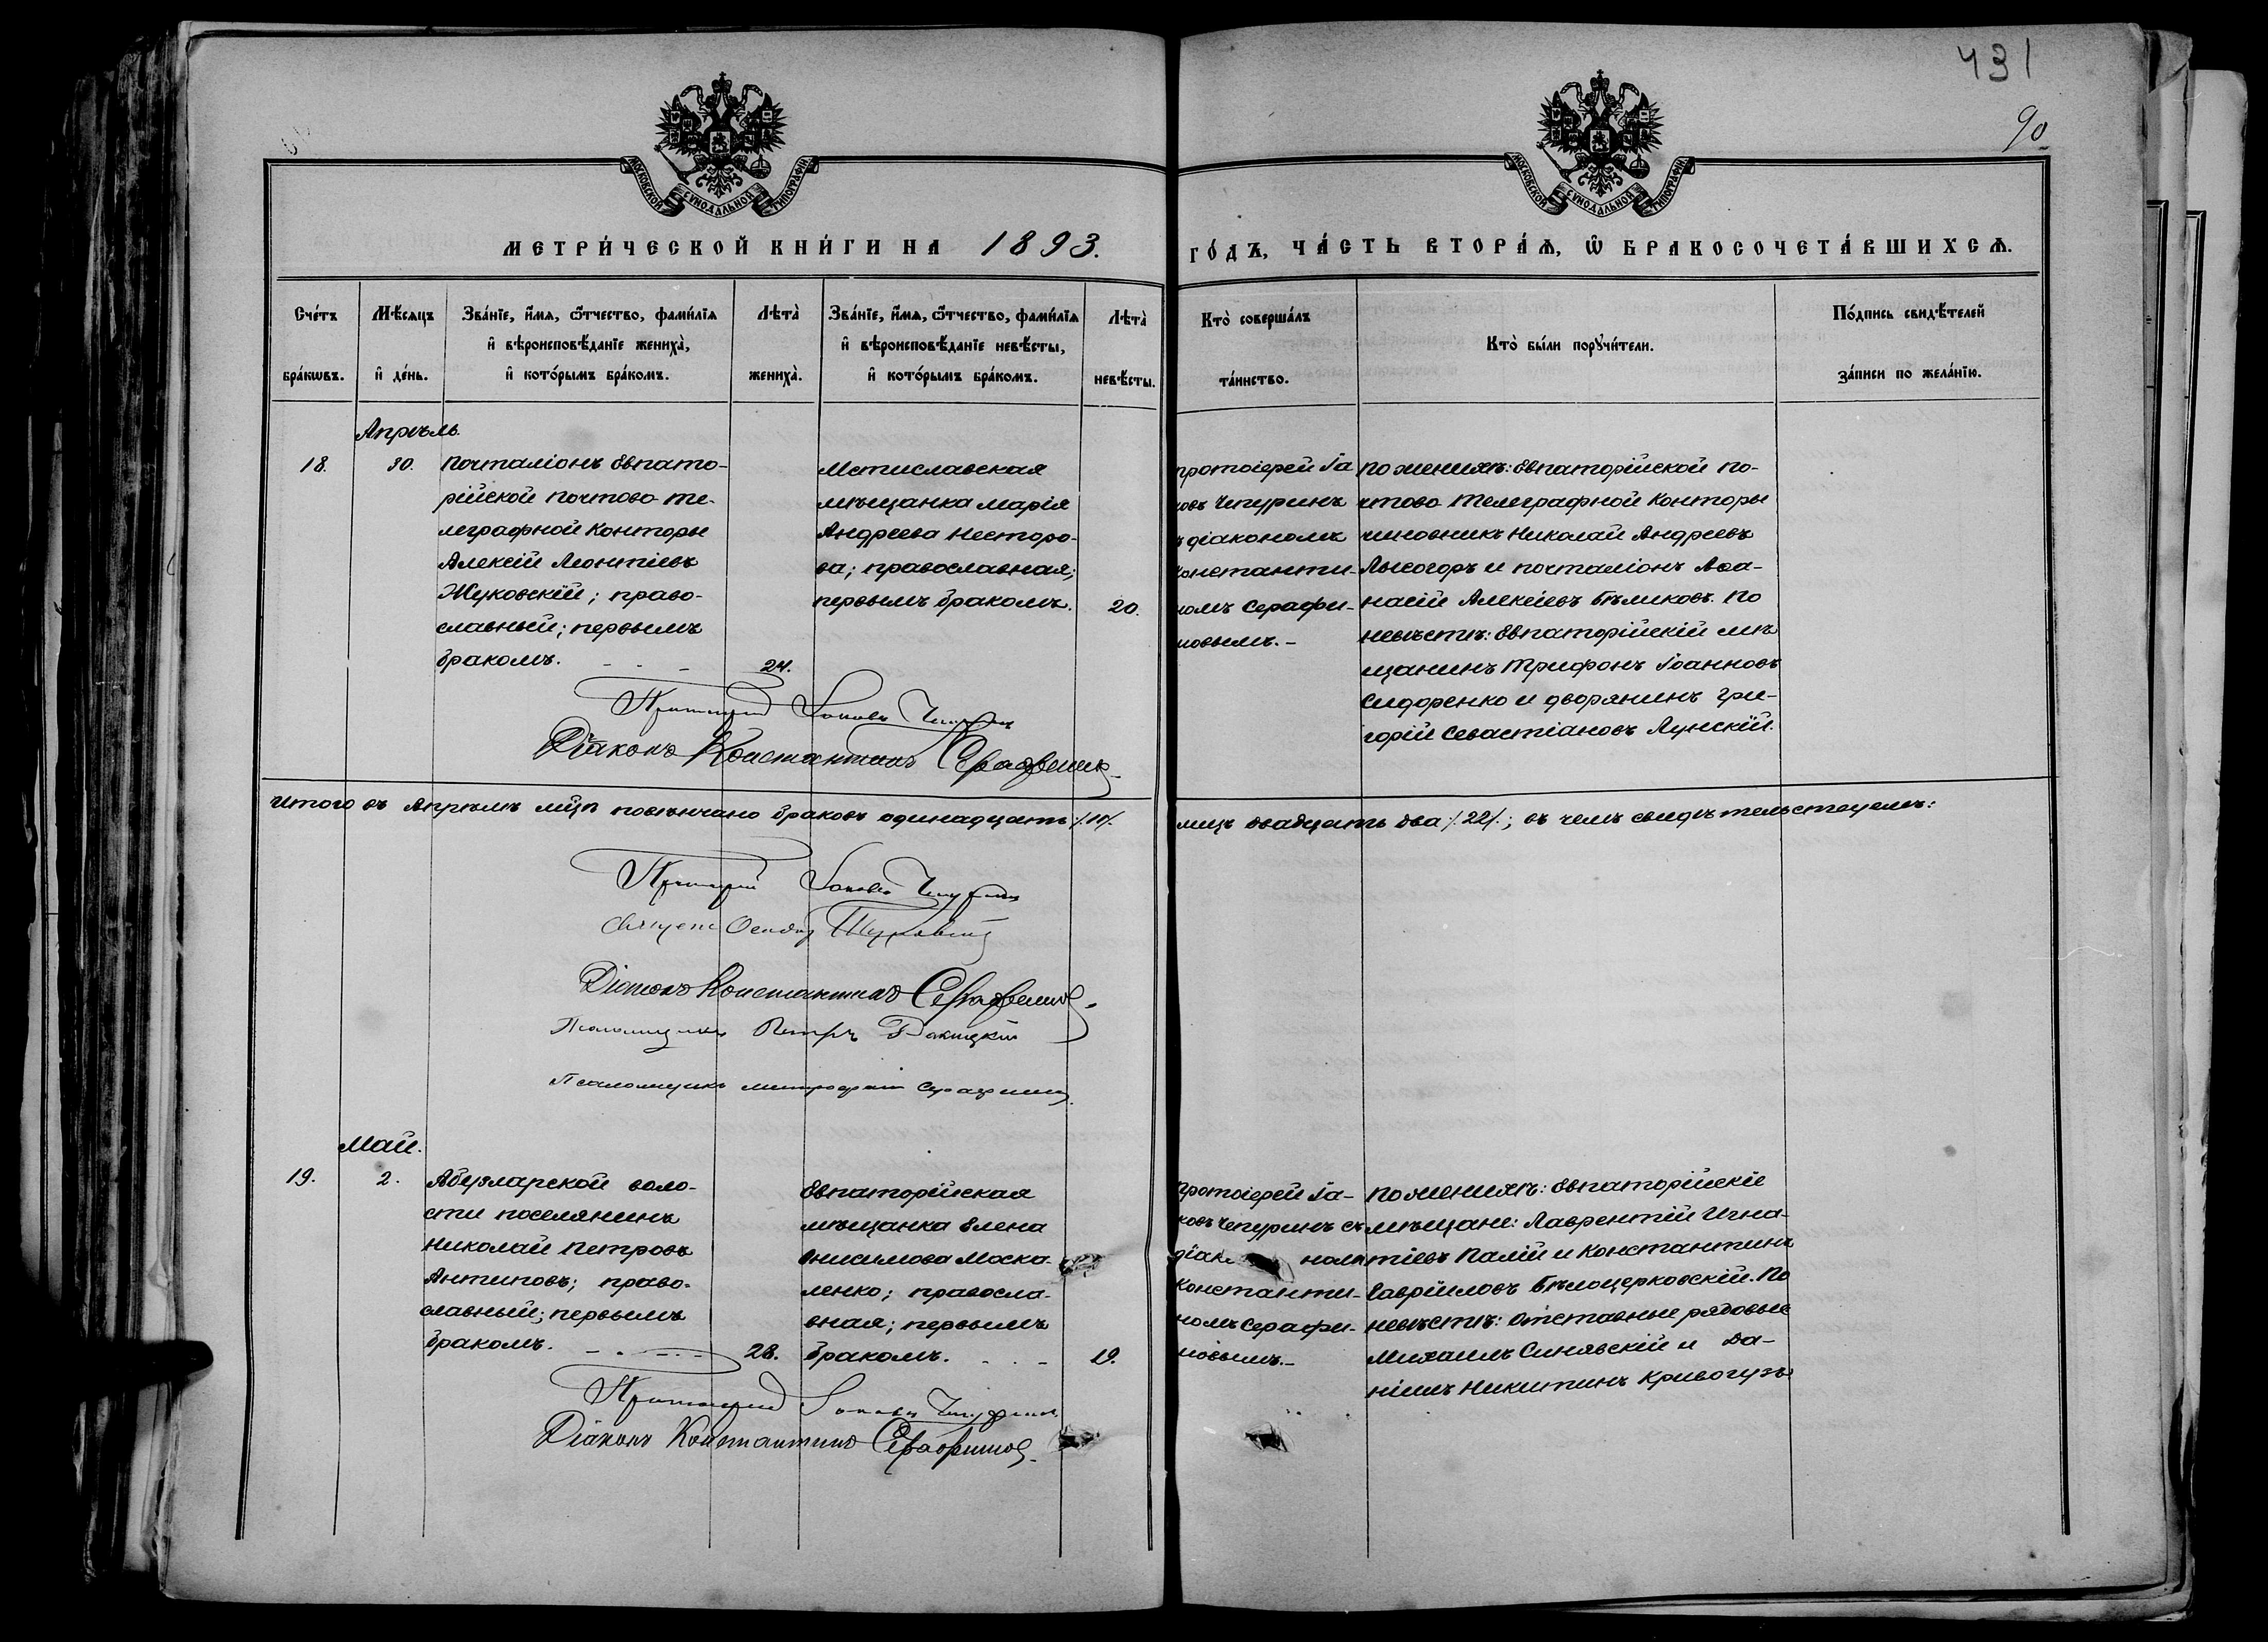 431
90
МОСКОВСКОЙ СѴНОДАЛЬНОЙ ТИПОГРАФІИ
МОСКОВСКОЙ СѴНОДАЛЬНОЙ ТИПОГРАФІИ
МЕТРИ́ЧЕСКОЙ КНИ́ГИ НА 1893. ГО́ДЪ, ЧА́СТЬ ВТОРА́Ѧ, Ѿ БРАКОСОЧЕТА́ВШИХСѦ.
Сче́тъ бра́кѡвъ.
Мѣ́сяцъ и҆ де́нь.
Зва́нїе, и҆́мѧ, ѻ҆́тчество, фами́лїѧ
и҆ вѣроисповѣ́данїе жениха̀,
и҆ кото́рымъ бра́комъ.
Лѣта̀ жениха̀.
Зва́нїе, и҆́мѧ, ѻ҆́тчество, фами́лїѧ
и҆ вѣроисповѣ́данїе невѣ́сты,
и҆ кото́рымъ бра́комъ.
Лѣта̀ невѣ́сты.
Кто̀ соверша́лъ та́инство.
Кто̀ бы́ли порꙋчи́тели.
По́дпись свидѣ́телей
за́писи по жела́нїю.
Апрѣль.
18.
30.
Почталіонъ Евпато-
рійской Почтово-Те-
леграфной Конторы
Алексій Леонтіевъ
Жуковскій; право-
славный; первымъ
бракомъ.
24.
Мстиславская
мѣщанка Марія
Андреева Несторо-
ва; православная;
первымъ бракомъ.
20.
Протоіерей Іа
ковъ Чепуринъ
ъ діакономъ
Константи-
номъ Серафи-
новымъ.-
По женихѣ: Евпаторійской По-
чтово Телеграфной Конторы
чиновникъ Николай Андреевъ
Лысогоръ и почталіонъ Аѳа-
насій Алексіевъ Бѣликовъ. По
невѣстѣ: Евпаторійскій мѣ
щанинъ Трифонъ Іоанновъ
Сидоренко и дворянинъ Гри-
горій Севастіановъ Лунскій.
Протоіерей Іаковъ Чепуринъ
Діаконъ Константинъ Серафимовъ
Итого въ Апрѣлѣ мцѣ повѣнчано браковъ одинадцать /.11/. лицъ двадцать два /.22/.; въ чемъ свидѣтельствуемъ:
Протоіерей Іаковъ Чепуринъ
Діаконъ Константинъ Серафимовъ
Псаломщикъ Петръ
Псаломщикъ Митрофанъ
Май.
19.
2.
Абузларской воло-
сти поселянинъ
Николай Петровъ
Антиповъ; право-
славный; первымъ
бракомъ.
28.
Евпаторійская
мѣщанка Елена
Онисимова Моска-
ленко; правосла-
вная; первымъ
бракомъ.
19.
Протоіерей Іа-
ковъ Чепуринъ съ
діак номъ
Константи-
номъ Серафи-
новымъ.-
По женихѣ: Евпаторійскіе
мѣщане: Лаврентій Игна-
тіевъ Палій и Константинъ
Гавріиловъ Бѣлоцерковскій. По
невѣстѣ: Отставные рядовые
Михаилъ Синявскій и Да-
ніилъ Никитинъ Кривогузъ
Протоіерей Іаковъ Чепуринъ
Діаконъ Константинъ Серафимовъ